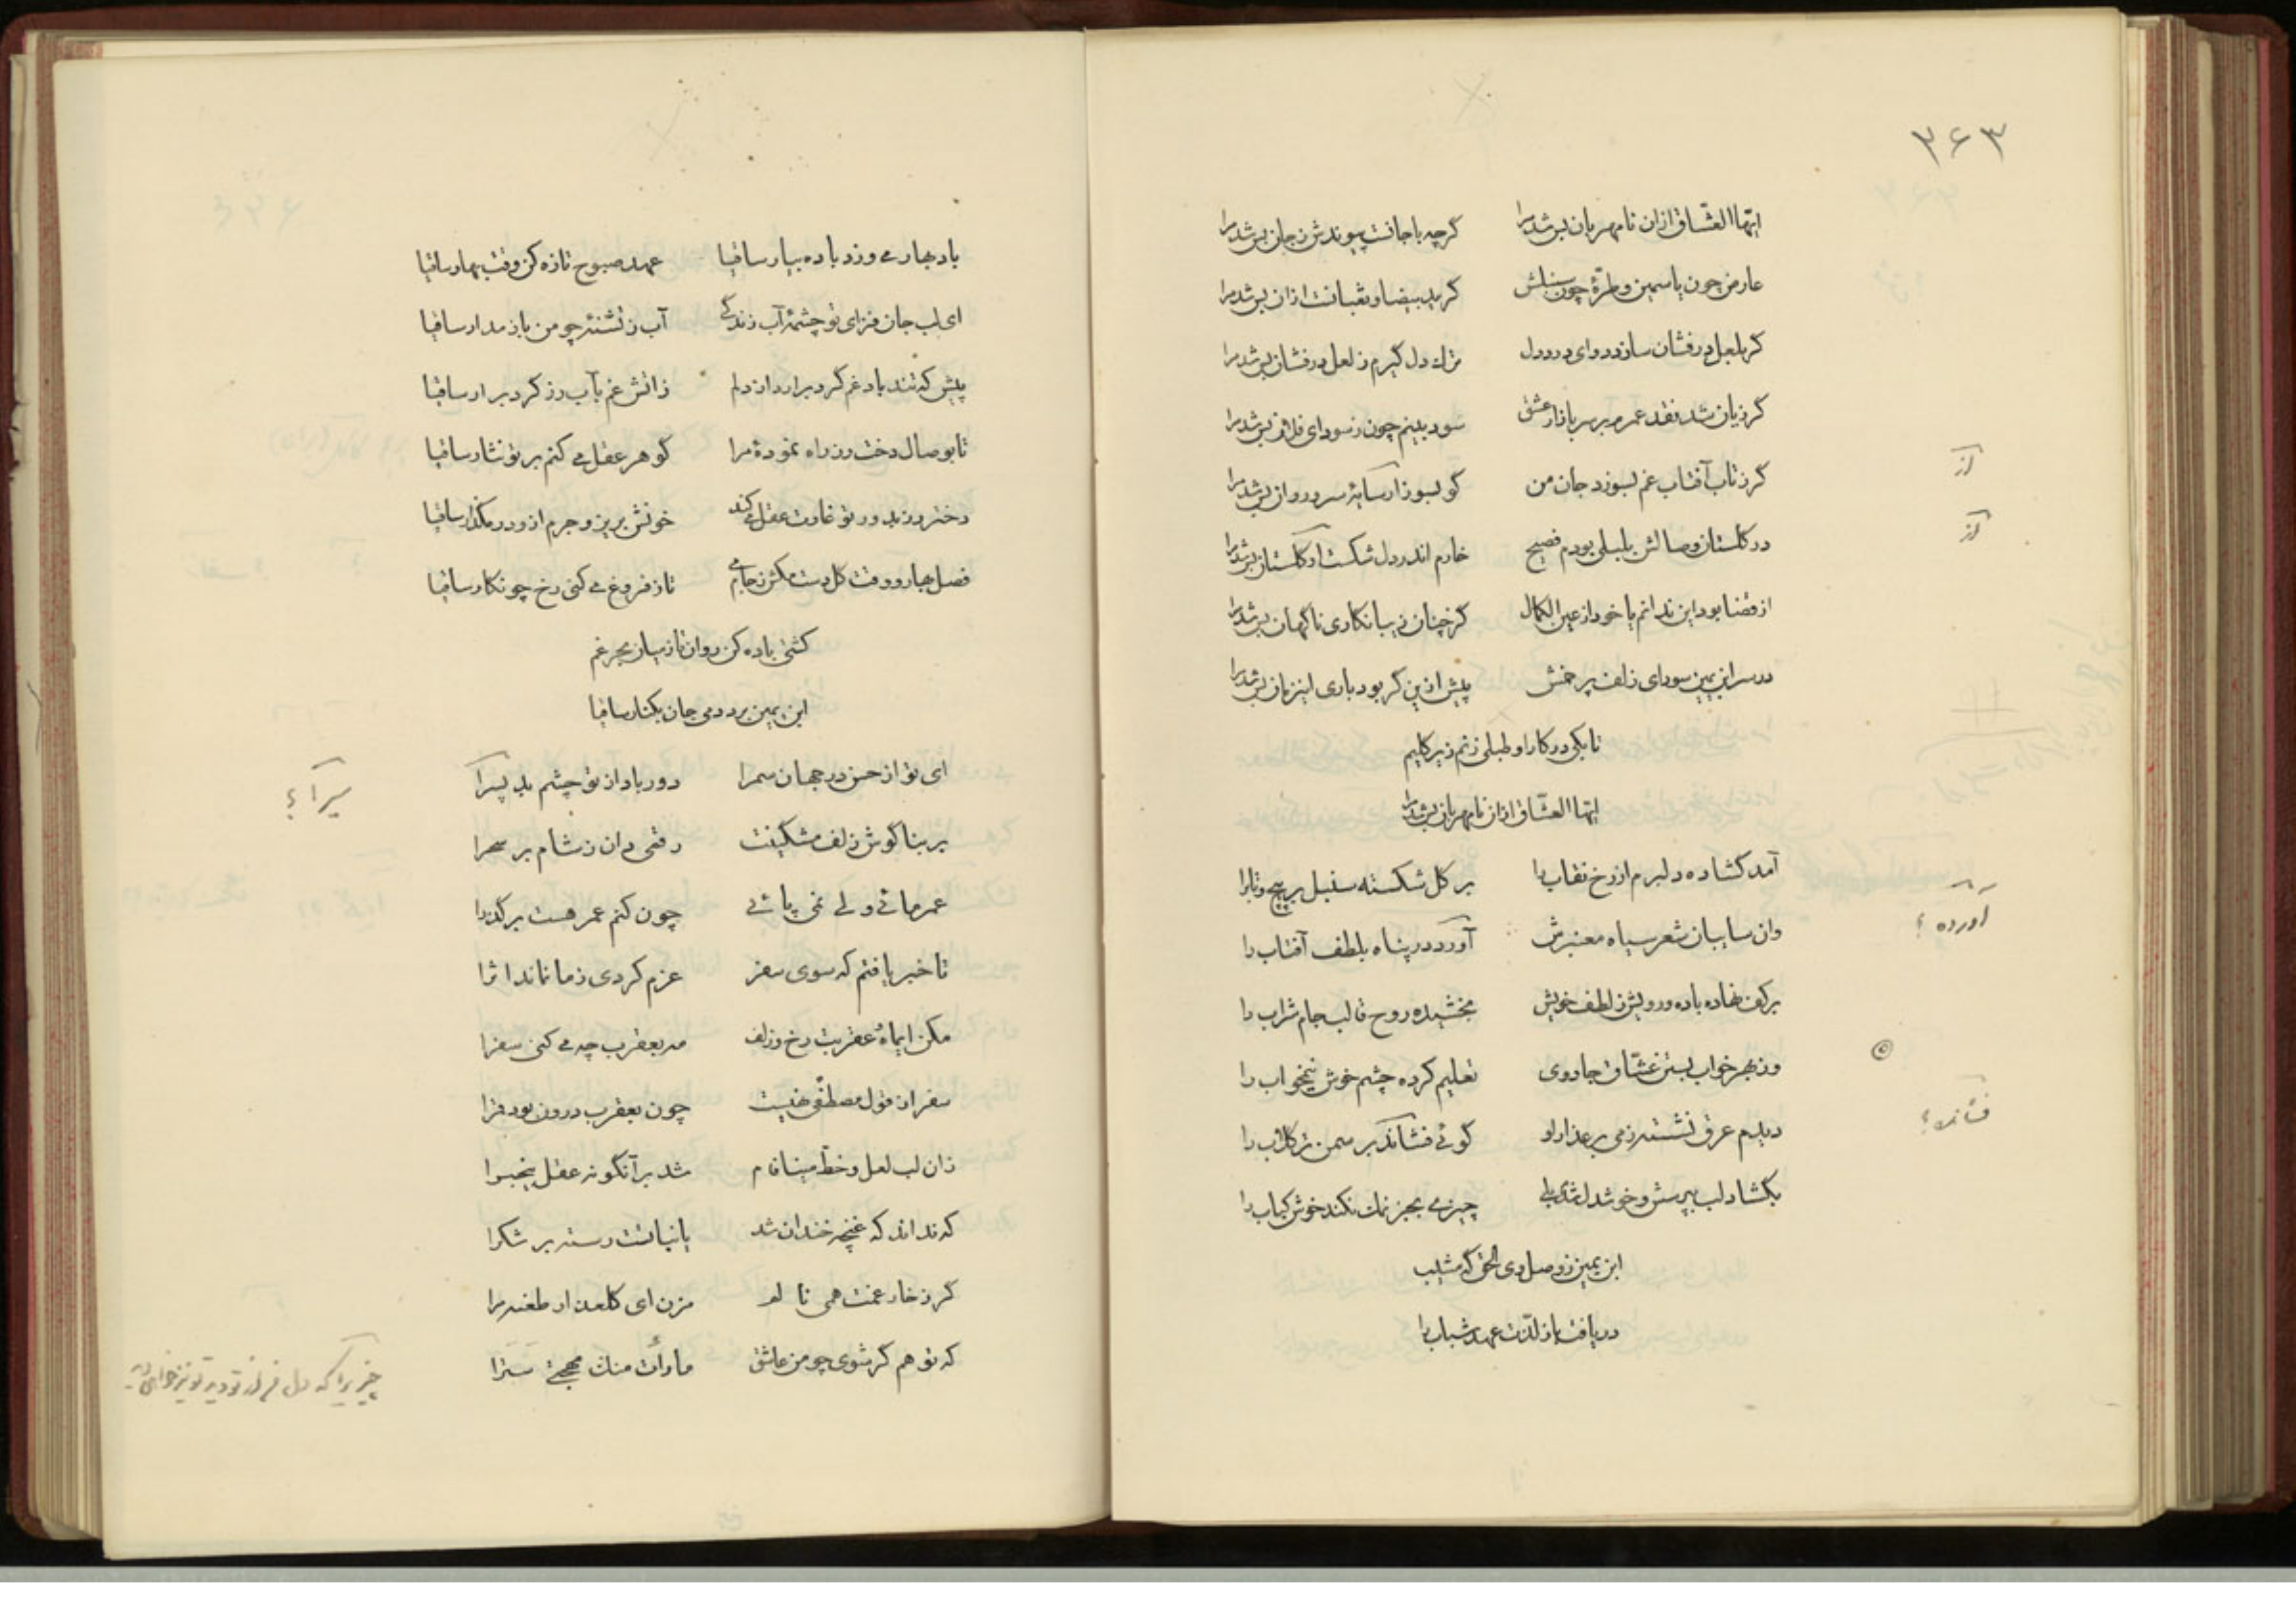 ۳۶۳
ایّها العشّاق ازان نامهربان بس شد مرا گرچه با جانست پیوندش ز جان بس شد مرا
عارض چون یاسمین و طرّهٔ چون سنبلش کر ید بیضا و ثعبانست ازان بس شد مرا
گر بلعل درفشان سازد دوای درد دل ترك دل گیرم ز لعل درفشان بس شد مرا
گر زیان شد نقد عمرم بر سر بازار عشق سود بینم چون ز سودای فلان بس شد مرا
گر ز تاب آفتاب غم بسوزد جان من کو بسوز ار سایهٔ سرو روان بس شد مرا
در گلستان وصالش بلبلی بودم فصیح خارم اندر دل شکست او گلستان بس شد مرا
از قضا بود این ندانم یا خود از عین الکمال کز چنان زیبا نگاری ناگهان بس شد مرا
در سر ابن یمین سودای زلف پر خمش پیش ازین گر بود باری این زمان بس شد مرا
تا بکی در کار او طبلی زنم زیر گلیم
ایّها العشّاق ازان نامهربان بس شد مرا
آمد گشاده دلبرم از رخ نقاب را بر گل شکسته سنبل پر پیچ و تاب را
وان سایبان شعر سیاه معنبرش آورد در پناه بلطف آفتاب را
بر کف نهاده باده و رویش ز لطف خویش بخشیده روح قالب جام شراب را
وز بهر خواب بستن عشّاق جادوی تعلیم کرده چشم خوش نیمخواب را
دیدم عرق نشسته ز می بر عذار او گوئی فشاند بر سمن تر گلاب را
بگشاد لب بپرسش و خوشدل شدم بلی چیزی بجز نمك نکند خوش کباب را
ابن یمین ز وصل وی الحق که مشیب
دریافت باز لذّت عهد شباب را
از
از
آورده ؟
فشانده ؟
باد بهار می وزد باده بیار ساقیا عهد صبوح تازه کن وقت بهار ساقیا
ای لب جان فزای تو چشمهٔ آب زندگی آب ز تشنهٔ چو من باز مدار ساقیا
پیش که تند باد غم گرد برارد از دلم ز آتش غم بآب رز گرد برار ساقیا
تا بوصال دخت رز راه نمودهٔ مرا گوهر عقل می کنم بر تو نثار ساقیا
دختر رز بدور تو غارت عقل می کند خونش بریز و جرم ازو در مگذار ساقیا
فصل بهار و وقت گل دست مکش ز جام می تا ز فروغ می کنی رخ چو نگار ساقیا
کشتی باده کن روان تا ز میان بحر غم
ابن یمین برد دمی جان بکنار ساقیا
ای تو از حسن در جهان سمرا دور باد از تو چشم بد پسرا
بر بناگوش زلف مشکینت رقمی دان ز شام بر سحرا
عمر مائی ولی نمی پائی چون کنم عمر هست بر گذرا
تا خبر یافتم که سوی سفر عزم کردی ز ما نماند اثرا
مکن ایماه عقربت رخ و زلف مه بعقرب چه می کنی سفرا
سفر از قول مصطفی نهیست چون بعقرب درون بود قمرا
زان لب لعل و خطّ مینا فام شد برآنگونه عقل بیخبرا
که نداند که غنچه خندان شد یا نباتست رسته بر شکرا
گر ز خار غمت همی نالم مزن ای گلعذار طعنه مرا
که تو هم گر شوی چو من عاشق ما رأت منك مهجتی سترا
سیرا ؟